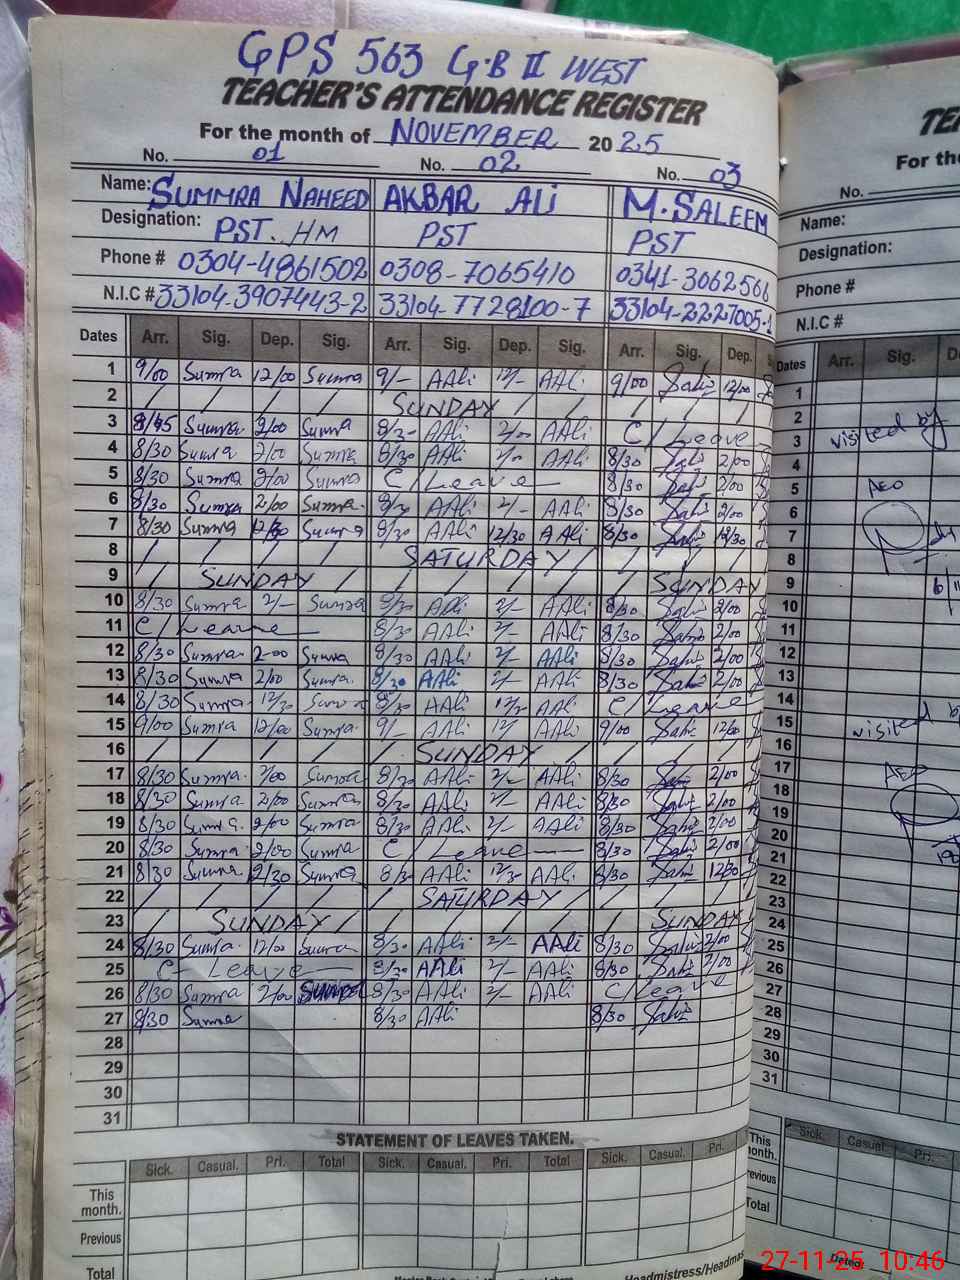 GPS 563 G.B II WEST
TEACHER'S ATTENDANCE REGISTER
For the month of NOVEMBER 2025
No. 01 No. 02 No. 03
Name: SUMMRA NAHEED AKBAR ALi M.SALEEM
Designation: PST. HM PST PST
Phone # 0304-4861502 0308-7065410 0341-3062566
N.I.C # 33104-3907443-2 33104-7728100-7 33104-2227005-
Dates Arr. Sig. Dep. Sig. Arr. Sig. Dep. Sig. Arr. Sig. Dep.
1 9/00 Sumra 12/00 Sumra 9/- AAli 12/- AAli 9/00 12/00
2 / / / / / SUNDAY / / / / /
3 8/45 Sumra 2/00 Sumra 8/30 AAli 2/00 AAli C/Leave
4 8/30 Sumra 2/00 Sumra 8/30 AAli 2/00 AAli 8/30 2/00
5 8/30 Sumra 2/00 Sumra C/Leave 8/30 2/00
6 8/30 Sumra 2/00 Sumra AAli 2/- AAli 8/30 2/00
7 8/30 Sumra 12/30 Sumra 8/30 AAli 12/30 AAli 8/30 12/30
8 / / / / / SATURDAY / / / / /
9 / SUNDAY / / / / / / SUNDAY
10 8/30 Sumra 2/- Sumra 8/30 AAli 2/- AAli 8/30 2/00
11 C/Leave 8/30 AAli 2/- AAli 8/30 2/00
12 8/30 Sumra 2-00 Sumra 8/30 AAli 2/- AAli 8/30 2/00
13 8/30 Sumra 2/00 Sumra 8/30 AAli 2/- AAli 8/30 2/00
14 8/30 Sumra 12/30 Sumra 8/30 AAli 12/30 AAli C/Leave
15 9/00 Sumra 12/00 Sumra 9/- AAli 12/- AAli 9/00 12/00
16 / / / / / SUNDAY / / / / /
17 8/30 Sumra 2/00 Sumra 8/30 AAli 2/- AAli 8/30 2/00
18 8/30 Sumra 2/00 Sumra 8/30 AAli 2/- AAli 8/30 2/00
19 8/30 Sumra 2/00 Sumra 8/30 AAli 2/- AAli 8/30 2/00
20 8/30 Sumra 2/00 Sumra C/Leave 8/30 2/00
21 8/30 Sumra 12/30 Sumra 8/30 AAli 12/30 AAli 8/30 12/30
22 / / / / / SATURDAY / / / / /
23 / SUNDAY / / / / / / SUNDAY
24 8/30 Sumra 12/00 Sumra 8/30 AAli 2/- AAli 8/30 2/00
25 C-Leave 8/30 AAli 2/- AAli 8/30 2/00
26 8/30 Sumra 2/00 8/30 AAli 2/- AAli C/Leave
27 8/30 Sumra 8/30 AAli 8/30
28
29
30
31
STATEMENT OF LEAVES TAKEN.
Sick. Casual. Pri. Total Sick. Casual. Pri. Total Sick. Casual. Pri.
This month.
Previous
Total
Headmistress/Headmas
TE
For the
No.
Name:
Designation:
Phone #
N.I.C #
Dates Arr. Sig. D
1
2
3 visited by
4
5 AEO
6
7
8
9
10
11
12
13
14
15 visited b
16
17 AEO
18
19
20
21
22
23
24
25
26
27
28
29
30
31
Sick. Casual. Pri.
This month.
Previous
Total
27-11-25 10:46